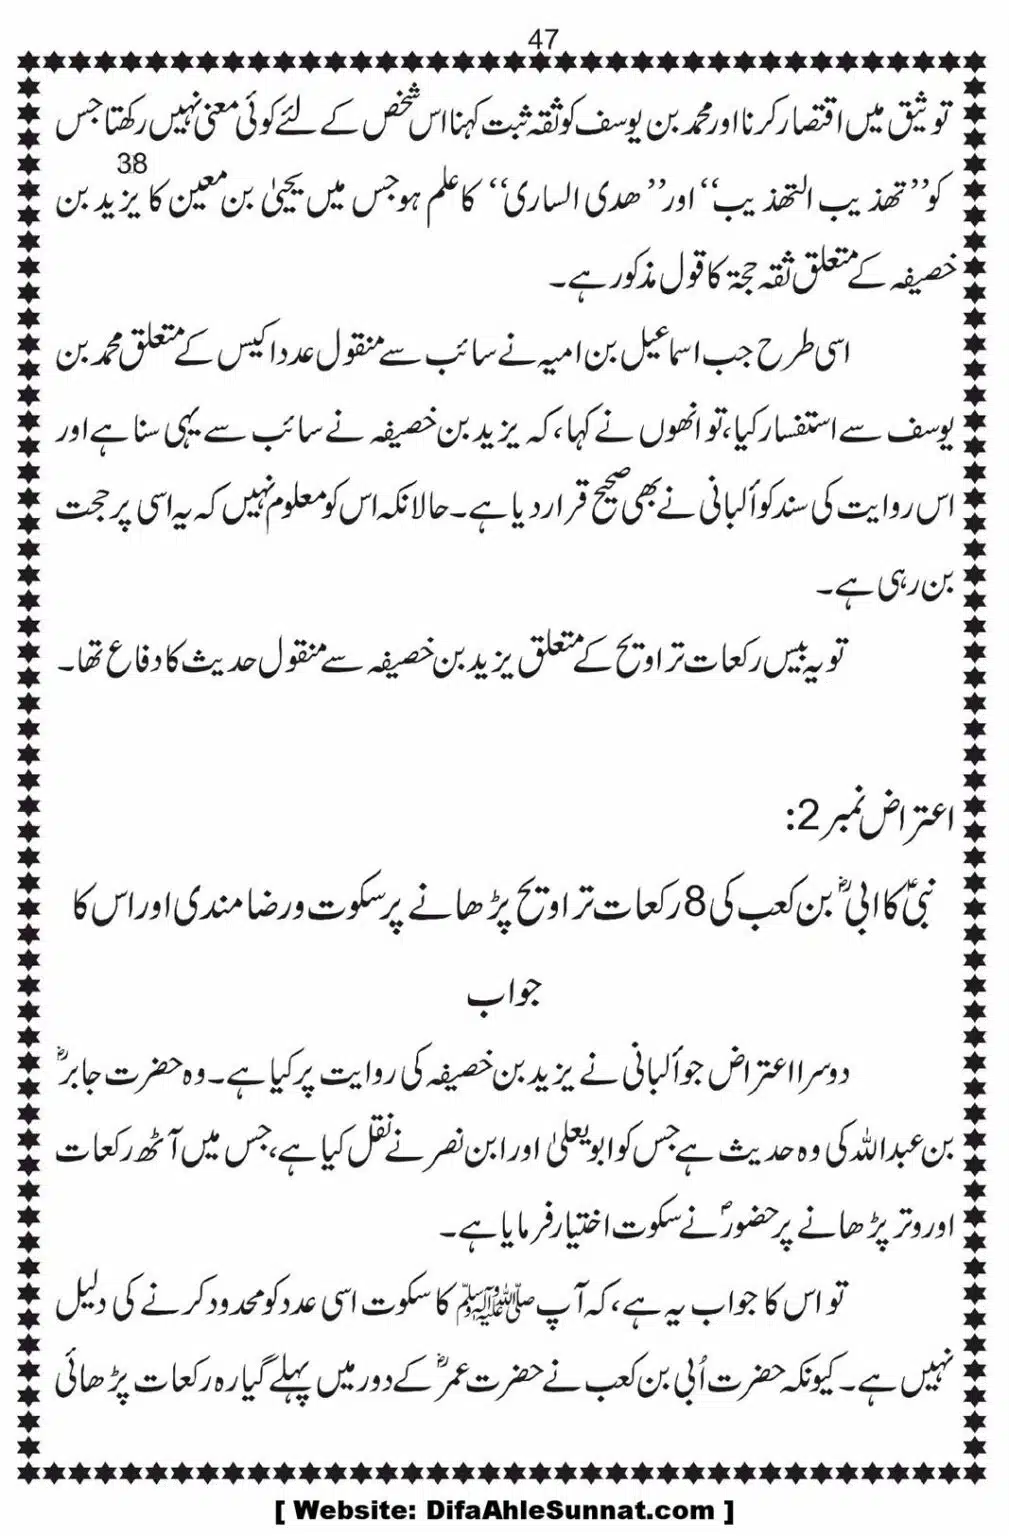 47
توثیق میں اقتصار کرنا اور محمد بن یوسف کو ثقہ ثبت کہنا اس شخص کے لئے کوئی معنی نہیں رکھتا جس
کو ’’تھذیب التھذیب‘‘ اور ’’ھدی الساری‘‘ کا علم ہو جس میں یحیٰ بن معین کا 38 یزید بن
خصیفہ کے متعلق ثقہ حجۃ کا قول مذکور ہے۔
اسی طرح جب اسماعیل بن امیہ نے سائب سے منقول عدد اکیس کے متعلق محمد بن
یوسف سے استفسار کیا، تو انھوں نے کہا، کہ یزید بن خصیفہ نے سائب سے یہی سنا ہے اور
اس روایت کی سند کو ألبانی نے بھی صحیح قرار دیا ہے۔ حالانکہ اس کو معلوم نہیں کہ یہ اسی پر حجت
بن رہی ہے۔
تو یہ بیس رکعات تراویح کے متعلق یزید بن خصیفہ سے منقول حدیث کا دفاع تھا۔
اعتراض نمبر 2:
نبیؐ کا ابیؓ بن کعب کی 8 رکعات تراویح پڑھانے پر سکوت و رضا مندی اور اس کا
جواب
دوسرا اعتراض جو ألبانی نے یزید بن خصیفہ کی روایت پر کیا ہے۔ وہ حضرت جابرؓ
بن عبداللہ کی وہ حدیث ہے جس کو ابو یعلیٰ اور ابن نصر نے نقل کیا ہے، جس میں آٹھ رکعات
اور وتر پڑھانے پر حضورؐ نے سکوت اختیار فرمایا ہے۔
تو اس کا جواب یہ ہے، کہ آپ ﷺ کا سکوت اسی عدد کو محدود کرنے کی دلیل
نہیں ہے۔ کیونکہ حضرت اُبی بن کعب نے حضرت عمرؓ کے دور میں پہلے گیارہ رکعات پڑھائی
[ Website: DifaAhleSunnat.com ]